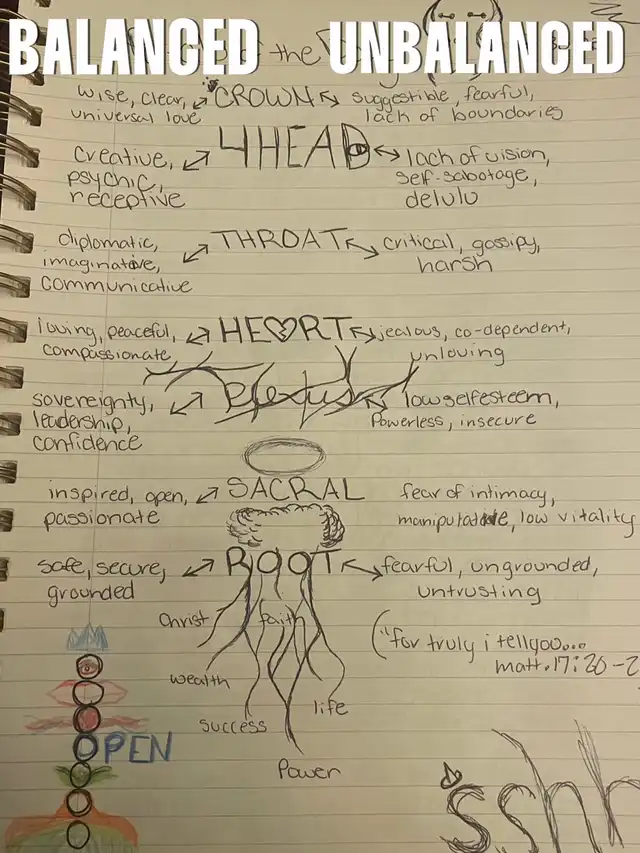 BALANCED UNBALANCED
of the
wise, clear, CROWN suggestible, fearful,
universal love lack of boundaries
creative, 4HEAD lack of vision,
psychic, self-sabotage,
receptive delulu
diplomatic, THROAT critical, gossipy,
imaginative, harsh
communicative
loving, peaceful, HEART jealous, co-dependent,
compassionate unloving
sovereignty, Plexus low selfesteem,
leadership, Powerless, insecure
confidence
inspired, open, SACRAL fear of intimacy,
passionate manipulative, low vitality
safe, secure, ROOT fearful, ungrounded,
grounded untrusting
Christ faith
("for truly i tell you...
matt. 17:20-2
wealth
life
success
OPEN
Power
sshh